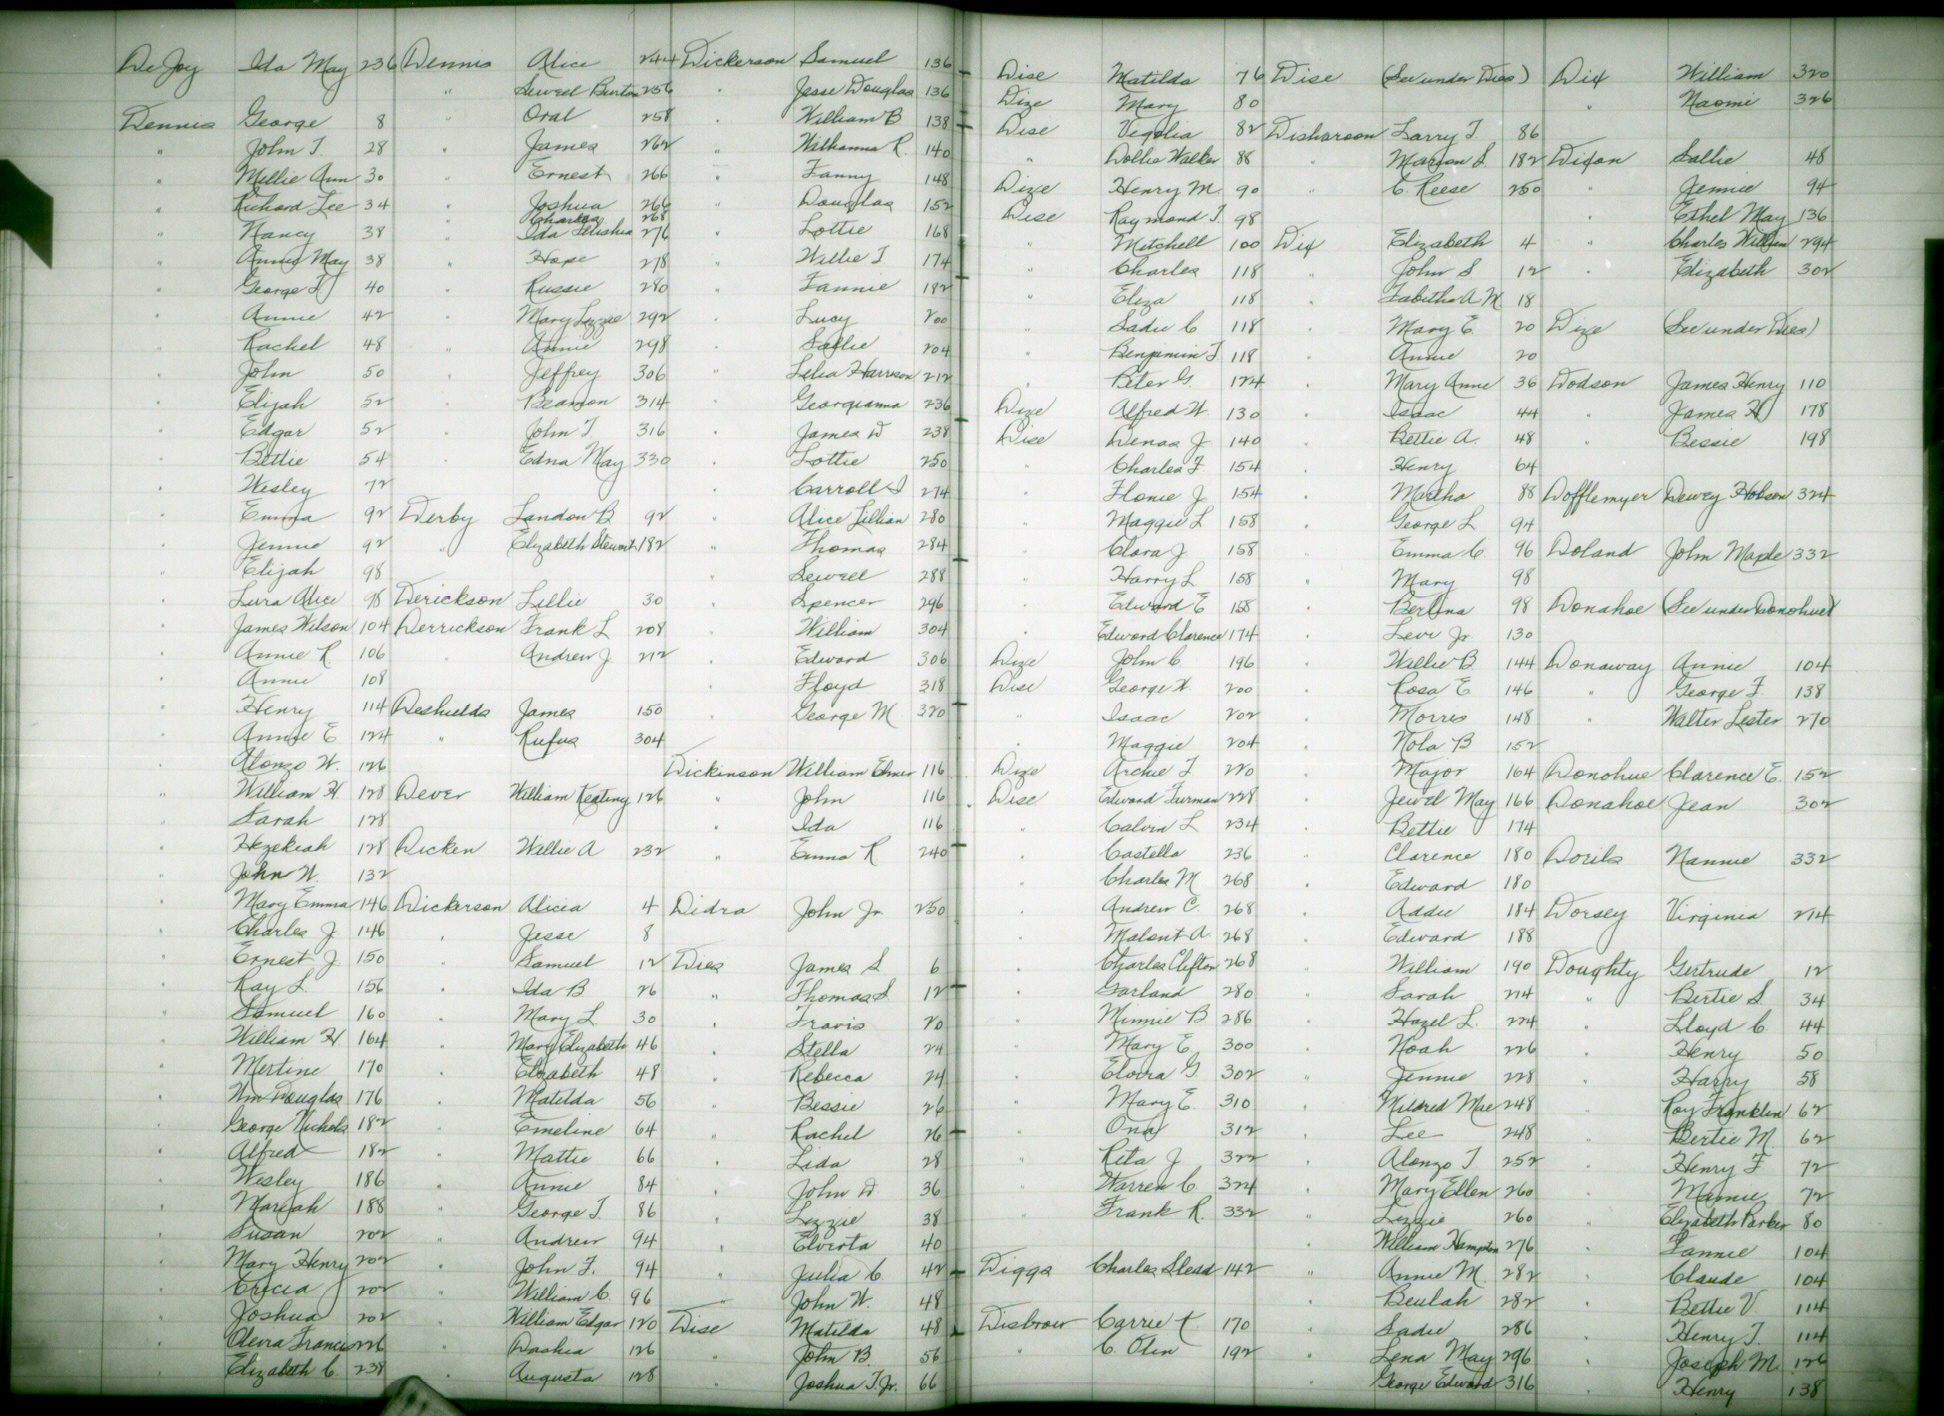 DeJoy Ida May 236
Dennis George 8
" John T. 28
" Millie Ann 30
" Richard Lee 34
" Nancy 38
" Annie May 38
" George T. 40
" Annie 42
" Rachel 48
" John 50
" Elijah 52
" Edgar 52
" Bettie 54
" Wesley 72
" Emma 92
" Jennie 92
" Elijah 98
" Lura Alice 98
" James Wilson 104
" Annie R 106
" Annie 108
" Henry 114
" Annie E 124
" Alonzo W. 126
" William H 128
" Sarah 128
" Hezekiah 128
" John W. 132
" Mary Emma 146
" Charles J 146
" Ernest J 150
" Ray L. 156
" Samuel 160
" William H 164
" Mertine 170
" Wm Douglas 176
" George Nichols 182
" Alfred 182
" Wesley 186
" Mariah 188
" Susan 202
" Mary Henry 202
" 202
" Joshua 202
" Francis 226
" Elizabeth C. 238
Dennis Alice 244
" Sewell Burton 256
" Oral 258
" James 262
" Ernest 266
" Joshua 266
" Charles 268
" Ida Letishia 276
" Hope 278
" Russie 280
" Mary Lizzie 292
" Annie 298
" Jeffrey 306
" 314
" John T 316
" Edna May 330
Derby Landon B 92
" Elizabeth Stewart 182
Derickson Lillie 30
Derrickson Frank L 208
" Andrew J 212
Deshields James 150
" Rufus 304
Dever William Keating 126
Dicken Willie A 232
Dickerson Alicia 4
" Jesse 8
" Samuel 12
" Ida B 26
" Mary L 30
" Mary Elizabeth 46
" Elizabeth 48
" Matilda 56
" Emeline 64
" Mattie 66
" Annie 84
" George T. 86
" Andrew 94
" John F. 94
" William C. 96
" William Edgar 120
" Dashia 126
" Augusta 128
Dickerson Samuel 136
" Jesse Douglas 136
" William B 138
" Wilhanna R. 140
" Fanny 148
" Douglas 152
" Lottie 168
" Willie T 174
" Fannie 182
" Lucy 200
" Sallie 204
" Lelia Harrison 212
" Georgianna 236
" James W 238
" Lottie 250
" Carroll S 274
" Alice Lillian 280
" Thomas 284
" Sewell 288
" Spencer 296
" William 304
" Edward 306
" Floyd 318
" George M. 320
Dickinson William Elmer 116
" John 116
" Ida 116
" Emma R 240
Didra John Jr. 250
Dies James S 6
" Thomas S. 12
" Travis 20
" Stella 24
" Rebecca 24
" Bessie 26
" Rachel 26
" Lida 28
" John W. 36
" Lizzie 38
" Elvirta 40
" Julia C. 42
" John W. 48
Dise Matilda 48
" John B. 56
" Joshua T. Jr. 66
Dise Matilda 76
Dize Mary 80
Dise Vegolia 82
" Dollie Walker 88
Dize Henry M. 90
Dise Raymond T. 98
" Mitchell 100
" Charles 118
" Eliza 118
" Sadie C 118
" Benjamin T 118
" Peter G. 124
Dize Alfred W. 130
Dise Denas J 140
" Charles F. 154
" Flonie J 154
" Maggie L 158
" Clara J 158
" Harry L 158
" Edward E 158
" Edward Clarence 174
Dize John C. 196
Dise George W. 200
" Isaac 202
" Maggie 204
Dize Archie T 220
Dise Edward Furman 228
" Calvin L 234
" Costello 236
" Charles M 268
" Andrew C. 268
" 268
" Charles Clifton 268
" Garland 280
" Minnie B 286
" Mary E 300
" Elvira G. 302
" Mary E. 310
" Ona 312
" Rita J 322
" Warren C. 324
" Frank R. 332
Diggs Charles 142
Disbrow Carrie 170
" C. Olin 192
Dise (See under Dies)
Disharoon Larry T. 86
" Marion S. 182
" C. Reese 250
Dix Elizabeth 4
" John S 12
" Tabitha A M. 18
" Mary E. 20
" Annie 20
" Mary Anne 36
" Isaac 44
" Bettie A. 48
" Henry 64
" Martha 88
" George L 94
" Emma C. 96
" Mary 98
" 98
" Levi Jr 130
" Willie B. 144
" Rosa E 146
" Morris 148
" Nola B 152
" Major 164
" Jewel May 166
" Bettie 174
" Clarence 180
" Edward 180
" Addie 184
" Edward 188
" William 190
" Sarah 214
" Hazel L. 224
" Noah 226
" Jennie 228
" Mildred Mae 248
" Lee 248
" Alonzo T. 252
" Mary Ellen 260
" Lizzie 260
" William Hampton 276
" Annie M. 282
" Beulah 282
" Sadie 286
" Lena May 296
" George Edward 316
Dix William 320
" Naomi 326
Dixon Sallie 48
" Jennie 94
" Ethel May 136
" Charles William 294
" Elizabeth 302
Dize (See under Dies)
Dodson James Henry 110
" James H 178
" Bessie 198
Dofflemyer Dewey Hobson 324
Doland John Maple 332
Donahoe (See under Donohue)
Donaway Annie 104
" George F. 138
" Walter Lester 270
Donohue Clarence E. 152
Donahoe Jean 302
Nannie 332
Dorsey Virginia 214
Doughty Gertrude 12
" Bertie S. 34
" Lloyd C. 44
" Henry 50
" Harry 58
" Roy Franklin 62
" Bertie M 62
" Henry F 72
" Mamie 72
" Elizabeth Parker 80
" Fannie 104
" Claude 104
" Bettie V. 114
" Henry T. 114
" Joseph M. 126
" Henry 138